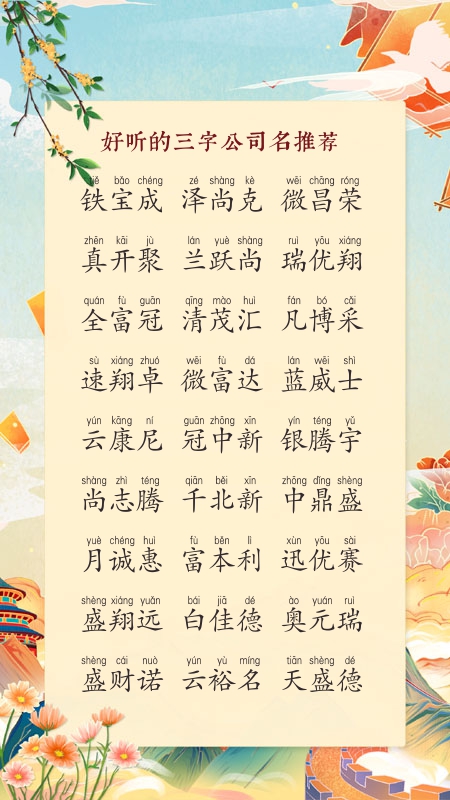 好听的三字公司名推荐
tiě bǎo chéng zé shàng kè wēi chāng róng
铁宝成 泽尚克 微昌荣
zhēn kāi jù lán yuè shàng ruì yōu xiáng
真开聚 兰跃尚 瑞优翔
quán fù guān qīng mào huì fán bó cǎi
全富冠 清茂汇 凡博采
sù xiáng zhuó wēi fù dá lán wēi shì
速翔卓 微富达 蓝威士
yún kāng ní guān zhōng xīn yín téng yǔ
云康尼 冠中新 银腾宇
shàng zhì téng qiān běi xīn zhōng dǐng shèng
尚志腾 千北新 中鼎盛
yuè chéng huì fù běn lì xùn yōu sài
月诚惠 富本利 迅优赛
shèng xiáng yuǎn bái jiā dé ào yuán ruì
盛翔远 白佳德 奥元瑞
shèng cái nuò yún yù míng tiān shèng dé
盛财诺 云裕名 天盛德